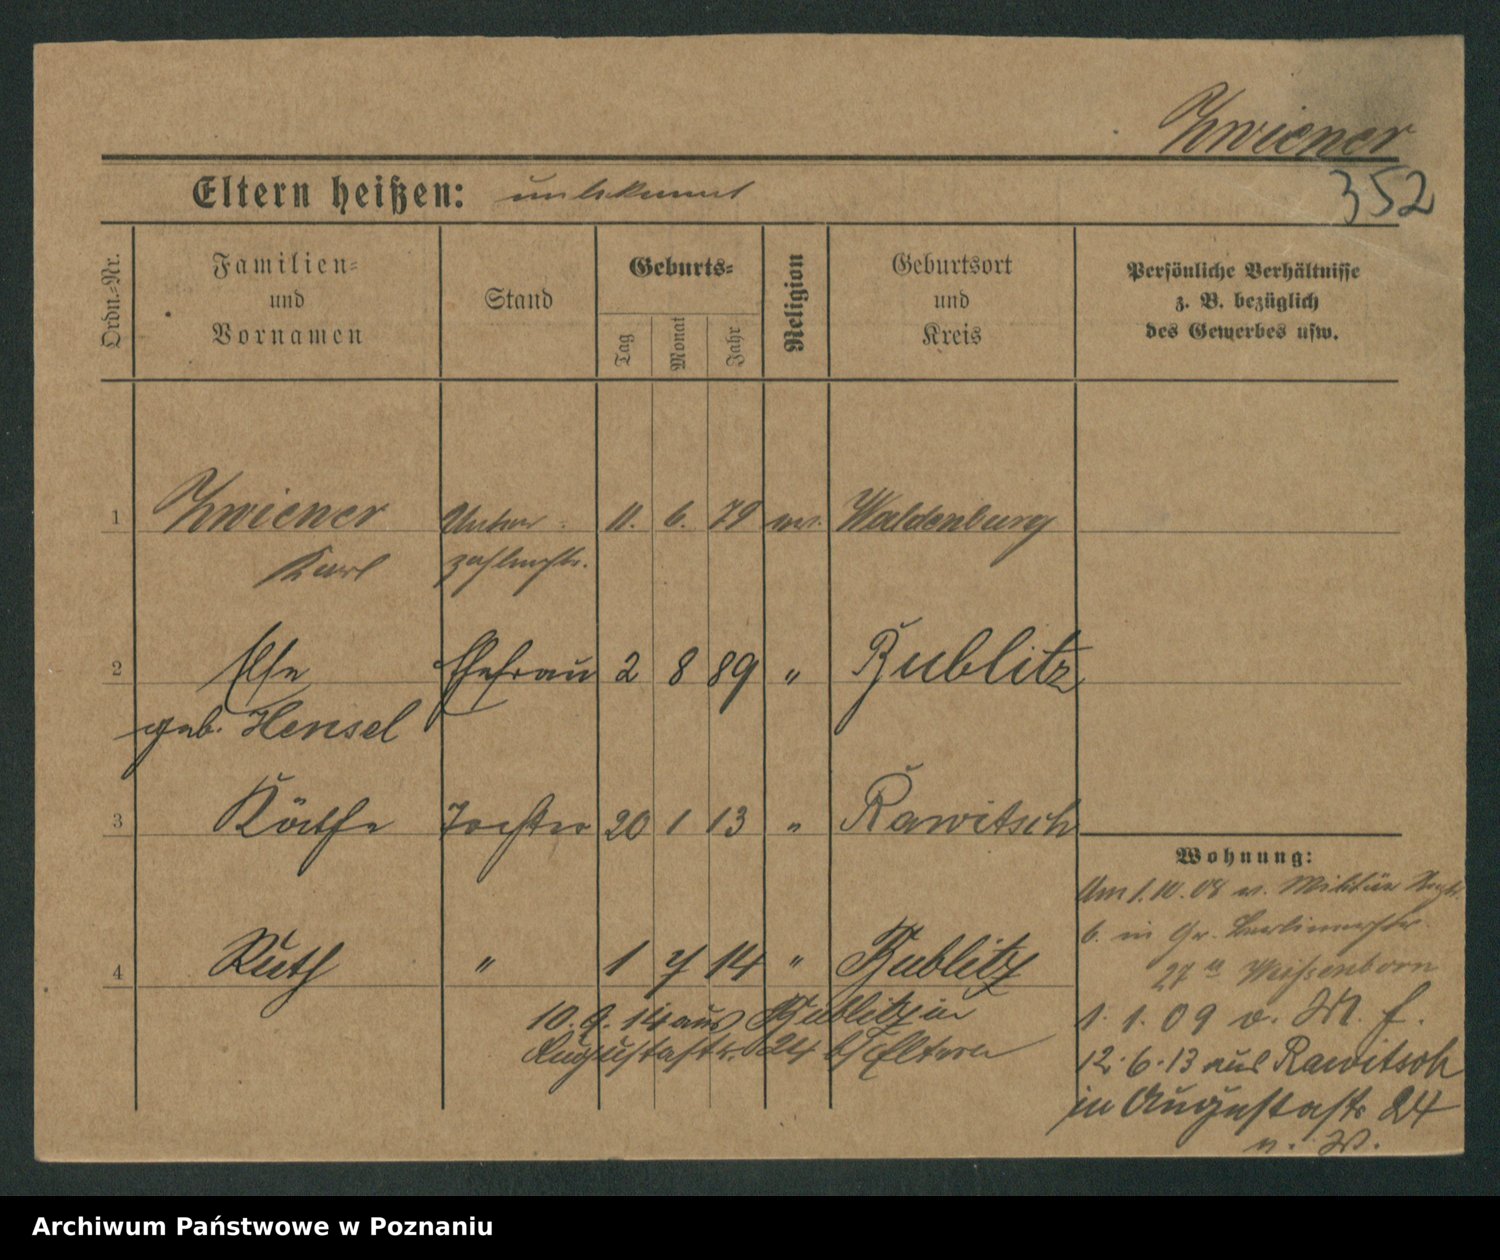 Zwiener
352
Eltern heißen: unbekannt
Ordn.-Nr.
Familien-
und
Vornamen
Stand
Geburts-
Tag
Monat
Jahr
Religion
Geburtsort
und
Kreis
Persönliche Verhältnisse
z. B. bezüglich
des Gewerbes usw.
1 Zwiener Unter- 11. 6. 79 ev. Waldenburg
Karl zahlmstr.
2 Else Ehefrau 2 8 89 " Bublitz
geb. Hensel
3 Käthe Tochter 20 1 13 " Rawitsch
4 Ruth " 1 7 14 " Bublitz
10. 9. 14 aus Bublitz in
Augustastr. 24 bei Eltern
Wohnung:
Am 1.10.08 v. Militär
6. in Gr. Berlinerstr.
27 Weissenborn
1. 1. 09 v. M. f.
12. 6. 13 aus Rawitsch
in Augustastr 24
v. W.
Archiwum Państwowe w Poznaniu